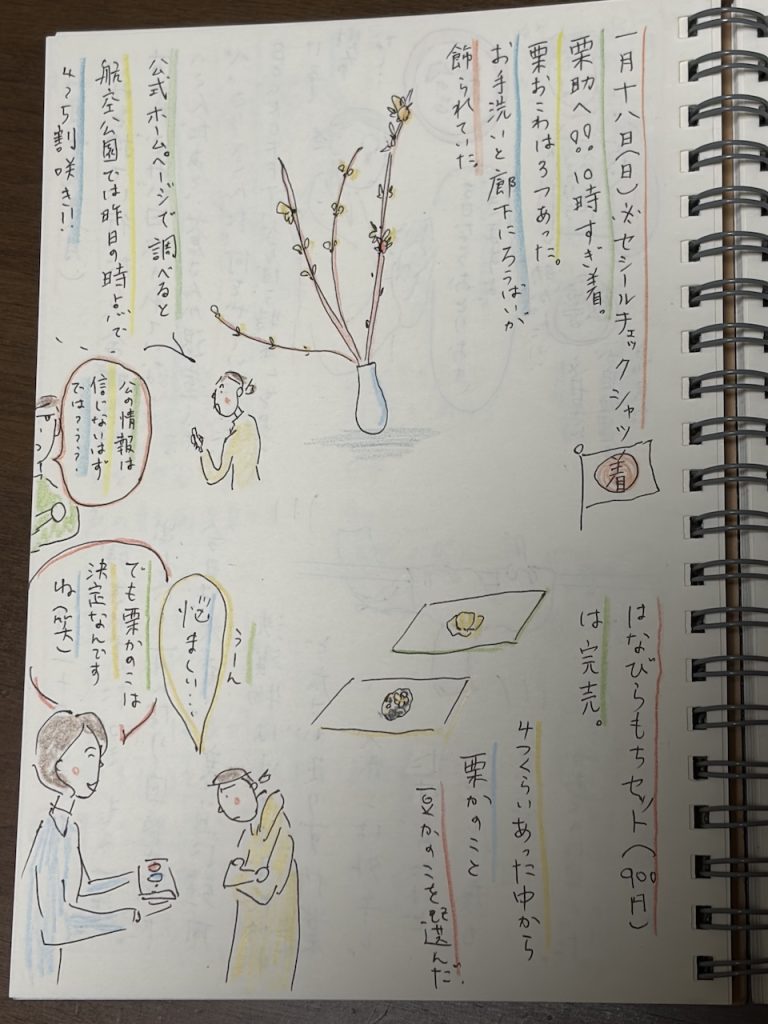 一月十八日(日)※セシールチェックシャツ
着
栗助へ!!10時すぎ着。
栗おこわは3つあった。
お手洗いと廊下にろうばいが
飾られていた。
公式ホームページで調べると
航空公園では昨日の時点で
4つち割咲き!!
公の情報は
信じないはず
では？？？
はなびらもちセット(900円)
は完売。
4つくらいあった中から
栗かのこと
豆かのこを選んだ。
うーん
悩ましい…
でも栗かのこは
決定なんです
ね(笑)